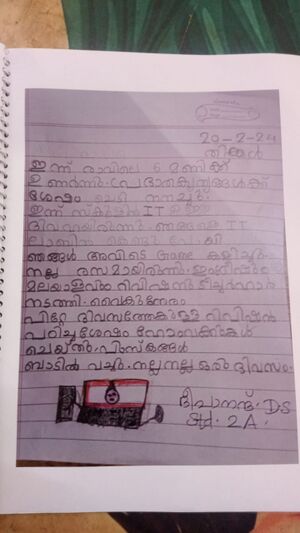 20-2-24
തിങ്കൾ
ഇന്ന് രാവിലെ 6 മണിക്ക്
ഉണർന്നു. പ്രഭാതകൃത്യങ്ങൾക്ക്
ശേഷം ചെടി നനച്ചു.
ഇന്ന് സ്കൂളിൽ IT
ദിവസമായിരുന്നു. ഞങ്ങളെ IT
ലാബിൽ കൊണ്ടു പോയി
ഞങ്ങൾ അവിടെ Game കളിച്ചു.
നല്ല രസമായിരുന്നു. ഇംഗ്ലീഷും
മലയാളവും റിവിഷൻ ടീച്ചർമാർ
നടത്തി. വൈകുന്നേരം
പിറ്റേ ദിവസത്തേക്കുള്ള റിവിഷൻ
പഠിച്ചു ശേഷം ഹോംവർക്കുകൾ
ചെയ്തു. പുസ്തകങ്ങൾ
ബാഗിൽ വച്ചു. നല്ല നല്ല ഒരു ദിവസം.
ദീപാനന്ദ്. D.S
Std. 2A.